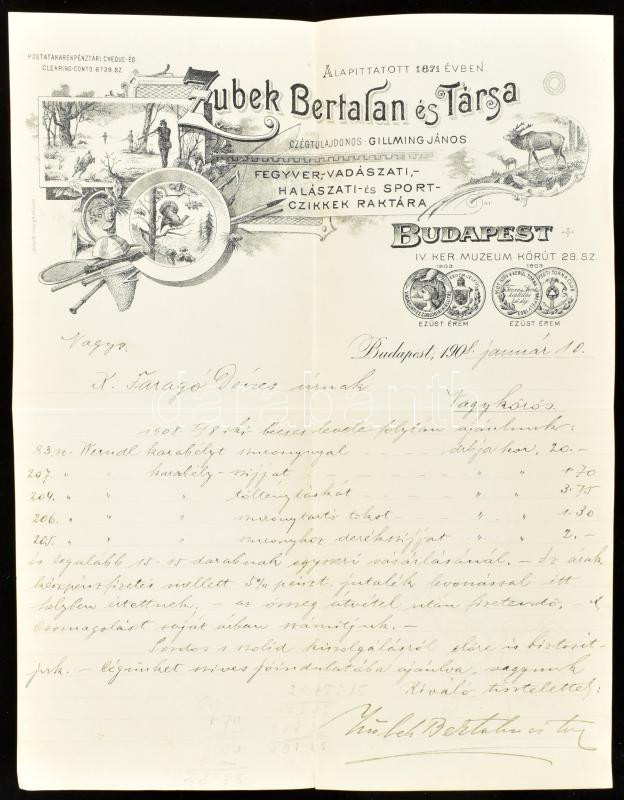 POSTATAKARÉKPÉNZTÁRI CHEQUE-ÉS
CLEARING-CONTO 8739.SZ.
ALAPITTATOTT 1871 ÉVBEN.
Zubek Bertalan és Társa
CZÉGTULAJDONOS: GILLMING JÁNOS
FEGYVER,-VADÁSZATI,-
HALÁSZATI- ÉS SPORT-
CZIKKEK RAKTÁRA
BUDAPEST
IV. KER. MUZEUM KÖRÚT 29. SZ.
1902 1903
EZÜST ÉREM EZÜST ÉREM
Budapest, 1908. január 10.
Nagys.
K. Faragó Dezső úrnak
Nagykőrös.
1908 I/8-iki becses levele folytán ajánlunk:
83. sz. Werndl karabélyt szuronynyal drbja kor. 20.–
207. " " karabély-szijjat " " 1.70
204. " " tölténytáskát " " 3.75
206. " " szuronytartó tokot " " 1.30
205. " " szuronyhoz derékszijjat " " 2.–
és legalább 15-15 darabnak egyszeri vásárlásánál. – Az árak
készpénzfizetés mellett 5% pénzt. jutalék levonással itt
helyben értettnek, – az összeg átvétel után fizetendő. – A
csomagolást saját árban számítjuk. –
Pontos s szolid kiszolgálásról előre is biztosít-
juk. – Cégünket szives jóindulatába ajánlva, vagyunk
Kiváló tisztelettel:
Zubek Bertalan és Tsa
darabanth